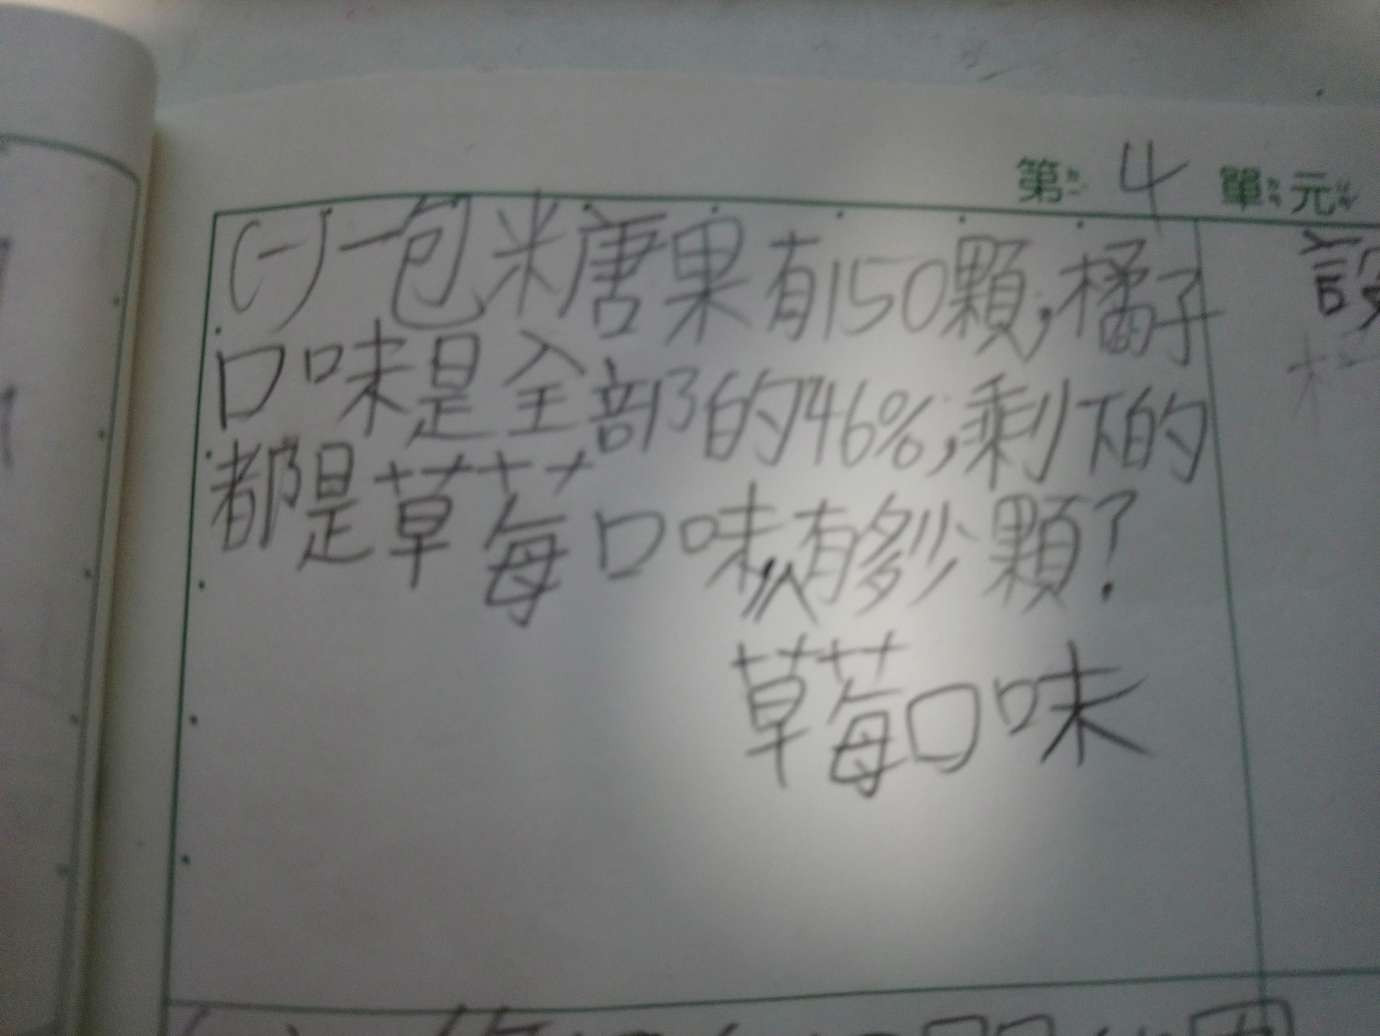 第 4 單元
(一)一包糖果有150顆,橘子
口味是全部的46%,剩下的
都是草莓口味,有多少顆?
草莓口味
設